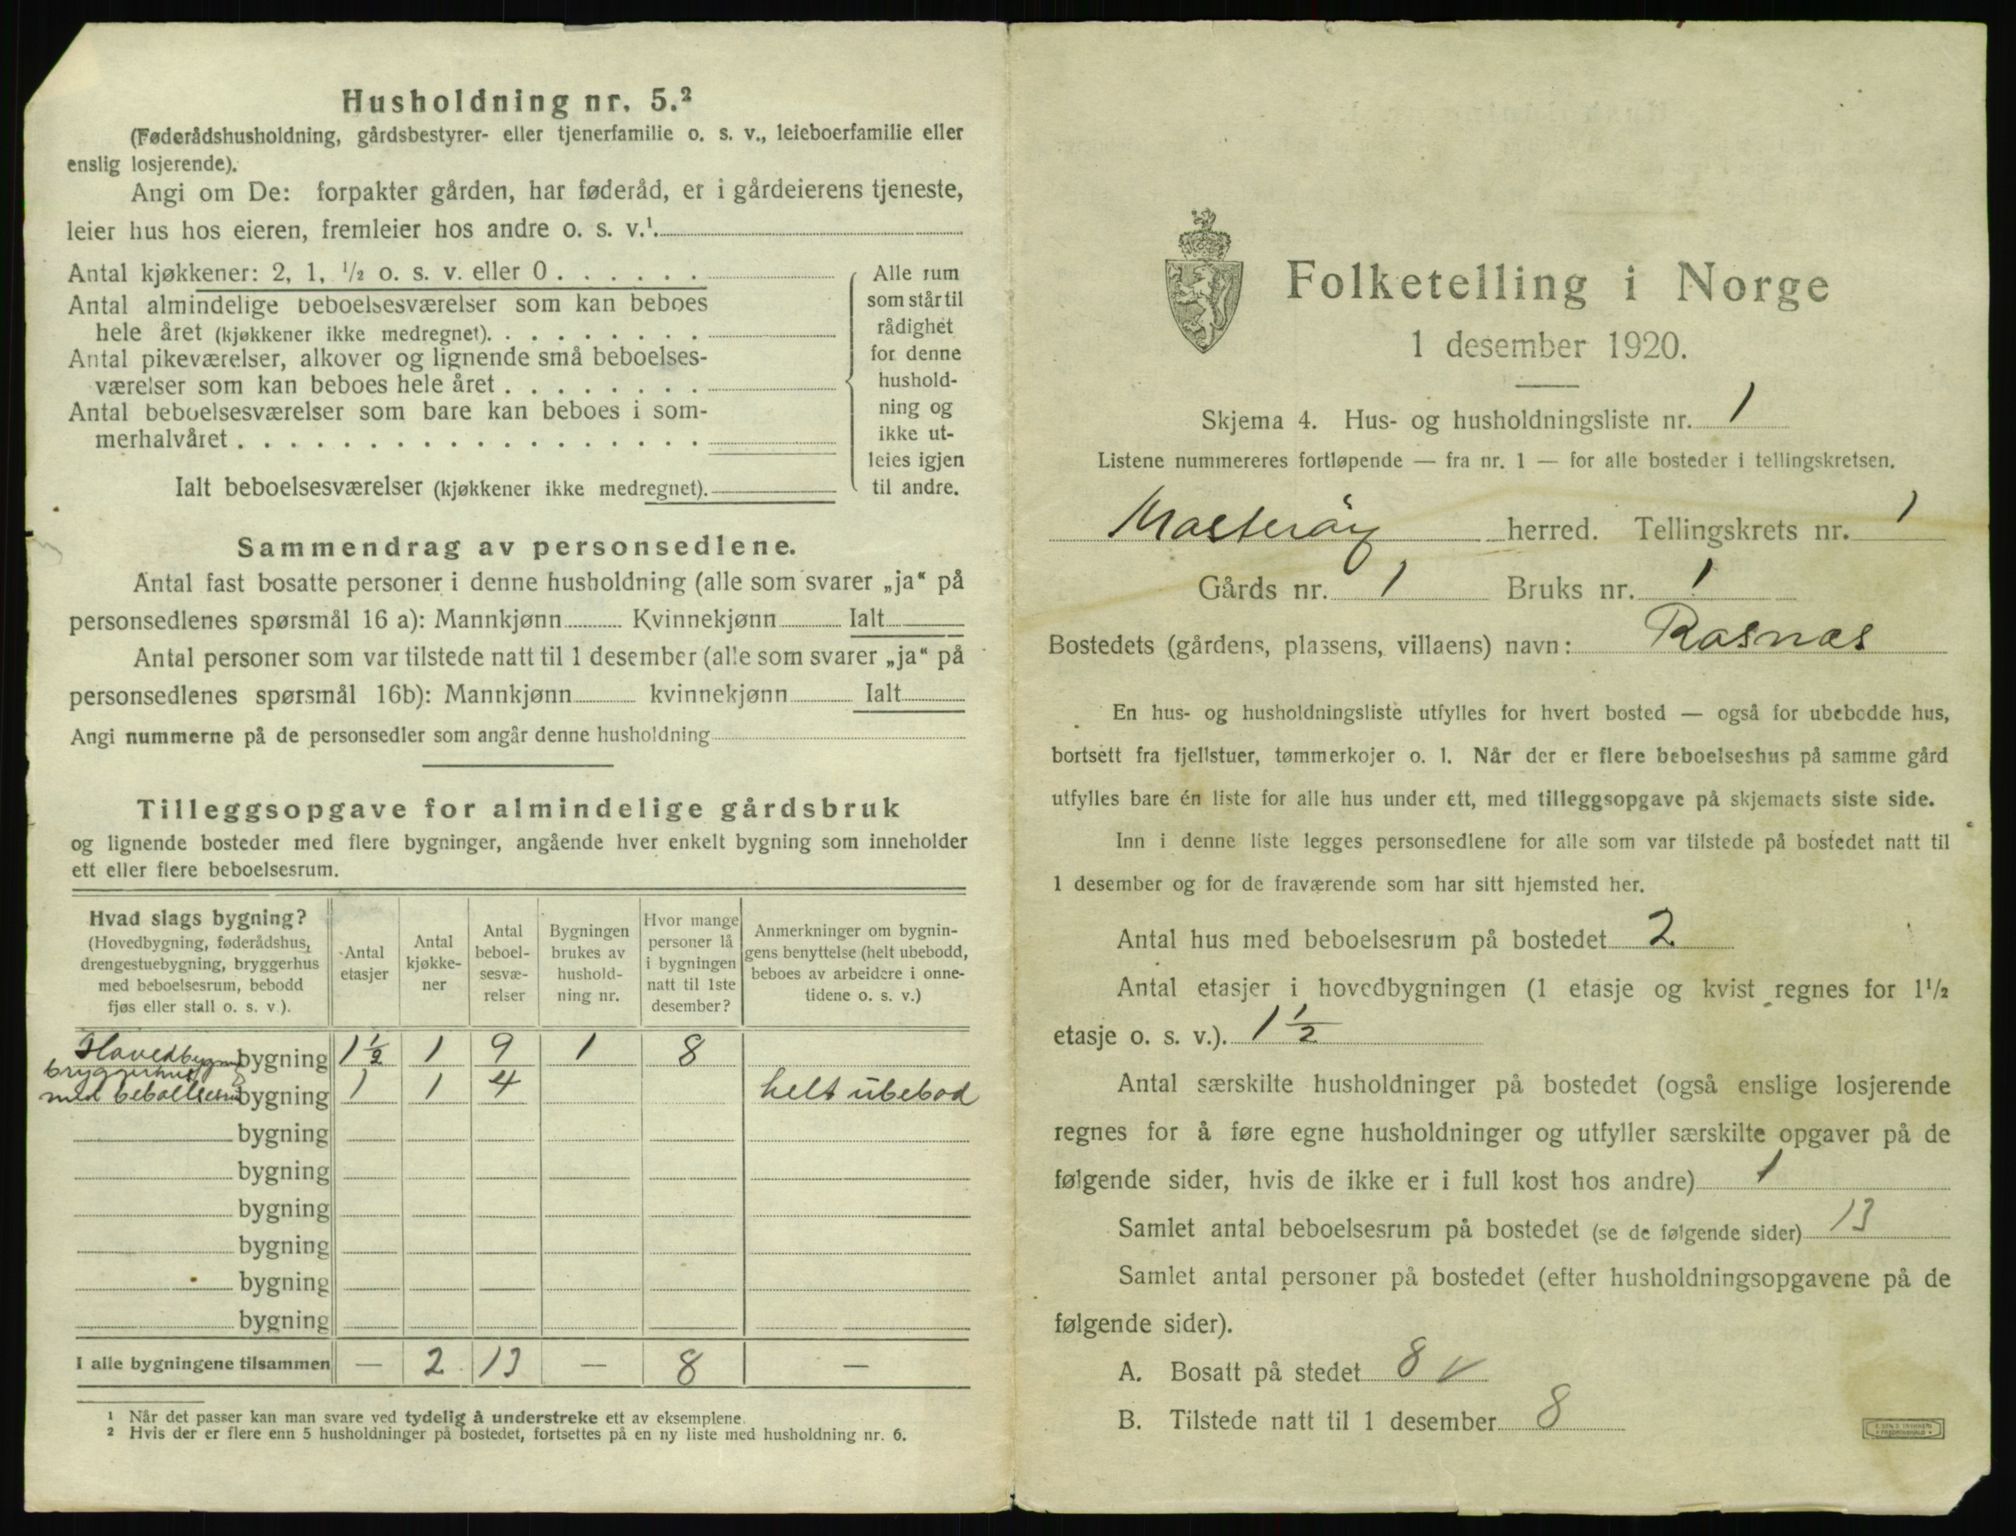 Husholdning nr. 5.²
(Føderådshusholdning, gårdsbestyrer- eller tjenerfamilie o. s. v., leieboerfamilie eller
enslig losjerende).
Angi om De: forpakter gården, har føderåd, er i gårdeierens tjeneste,
leier hus hos eieren, fremleier hos andre o. s. v.¹.
Antal kjøkkener: 2, 1, ½ o. s. v. eller 0 . . . . . .
Antal almindelige beboelsesværelser som kan beboes
hele året (kjøkkener ikke medregnet). . . . . . . . .
Antal pikeværelser, alkover og lignende små beboelses-
værelser som kan beboes hele året . . . . . . . .
Antal beboelsesværelser som bare kan beboes i som-
merhalvåret . . . . . . . . . . . . . . . . . .
Ialt beboelsesværelser (kjøkkener ikke medregnet).
Alle rum
som står til
rådighet
for denne
hushold-
ning og
ikke ut-
leies igjen
til andre.
Sammendrag av personsedlene.
Antal fast bosatte personer i denne husholdning (alle som svarer „ja“ på
personsedlenes spørsmål 16 a): Mannkjønn Kvinnekjønn Ialt
Antal personer som var tilstede natt til 1 desember (alle som svarer „ja“ på
personsedlenes spørsmål 16b): Mannkjønn kvinnekjønn Ialt
Angi nummerne på de personsedler som angår denne husholdning
Tilleggsopgave for almindelige gårdsbruk
og lignende bosteder med flere bygninger, angående hver enkelt bygning som inneholder
ett eller flere beboelsesrum.
Hvad slags bygning?
(Hovedbygning, føderådshus,
drengestuebygning, bryggerhus
med beboelsesrum, bebodd
fjøs eller stall o. s. v.).
Antal
etasjer
Antal
kjøkke-
ner
Antal
beboel-
sesvæ-
relser
Bygningen
brukes av
hushold-
ning nr.
Hvor mange
personer lå
i bygningen
natt til 1ste
desember?
Anmerkninger om bygnin-
gens benyttelse (helt ubebodd,
beboes av arbeidere i onne-
tidene o. s. v.)
Hovedbygning bygning 1½ 1 9 1 8
bryggerhus
med beboelsesrum bygning 1 1 4 helt ubebod
bygning
bygning
bygning
bygning
bygning
bygning
I alle bygningene tilsammen — 2 13 — 8 —
¹ Når det passer kan man svare ved tydelig å understreke ett av eksemplene.
² Hvis der er flere enn 5 husholdninger på bostedet, fortsettes på en ny liste med husholdning nr. 6.
Folketelling i Norge
1 desember 1920.
Skjema 4. Hus- og husholdningsliste nr. 1
Listene nummereres fortløpende — fra nr. 1 — for alle bosteder i tellingskretsen.
Mosterøy herred. Tellingskrets nr. 1
Gårds nr. 1 Bruks nr. 1
Bostedets (gårdens, plassens, villaens) navn: Rasnes
En hus- og husholdningsliste utfylles for hvert bosted — også for ubebodde hus,
bortsett fra fjellstuer, tømmerkojer o. l. Når der er flere beboelseshus på samme gård
utfylles bare én liste for alle hus under ett, med tilleggsopgave på skjemaets siste side.
Inn i denne liste legges personsedlene for alle som var tilstede på bostedet natt til
1 desember og for de fraværende som har sitt hjemsted her.
Antal hus med beboelsesrum på bostedet 2
Antal etasjer i hovedbygningen (1 etasje og kvist regnes for 1½
etasje o. s. v.). 1½
Antal særskilte husholdninger på bostedet (også enslige losjerende
regnes for å føre egne husholdninger og utfyller særskilte opgaver på de
følgende sider, hvis de ikke er i full kost hos andre) 1
Samlet antal beboelsesrum på bostedet (se de følgende sider) 13
Samlet antal personer på bostedet (efter husholdningsopgavene på de
følgende sider).
A. Bosatt på stedet 8 ✓
B. Tilstede natt til 1 desember 8